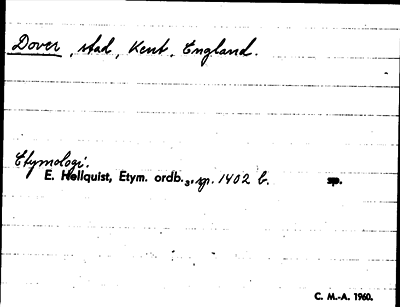 Dover, stad, Kent, England.
Etymologi.
E. Hellquist, Etym. ordb.3, sp. 1402 b. sp.
C. M.-A. 1960.